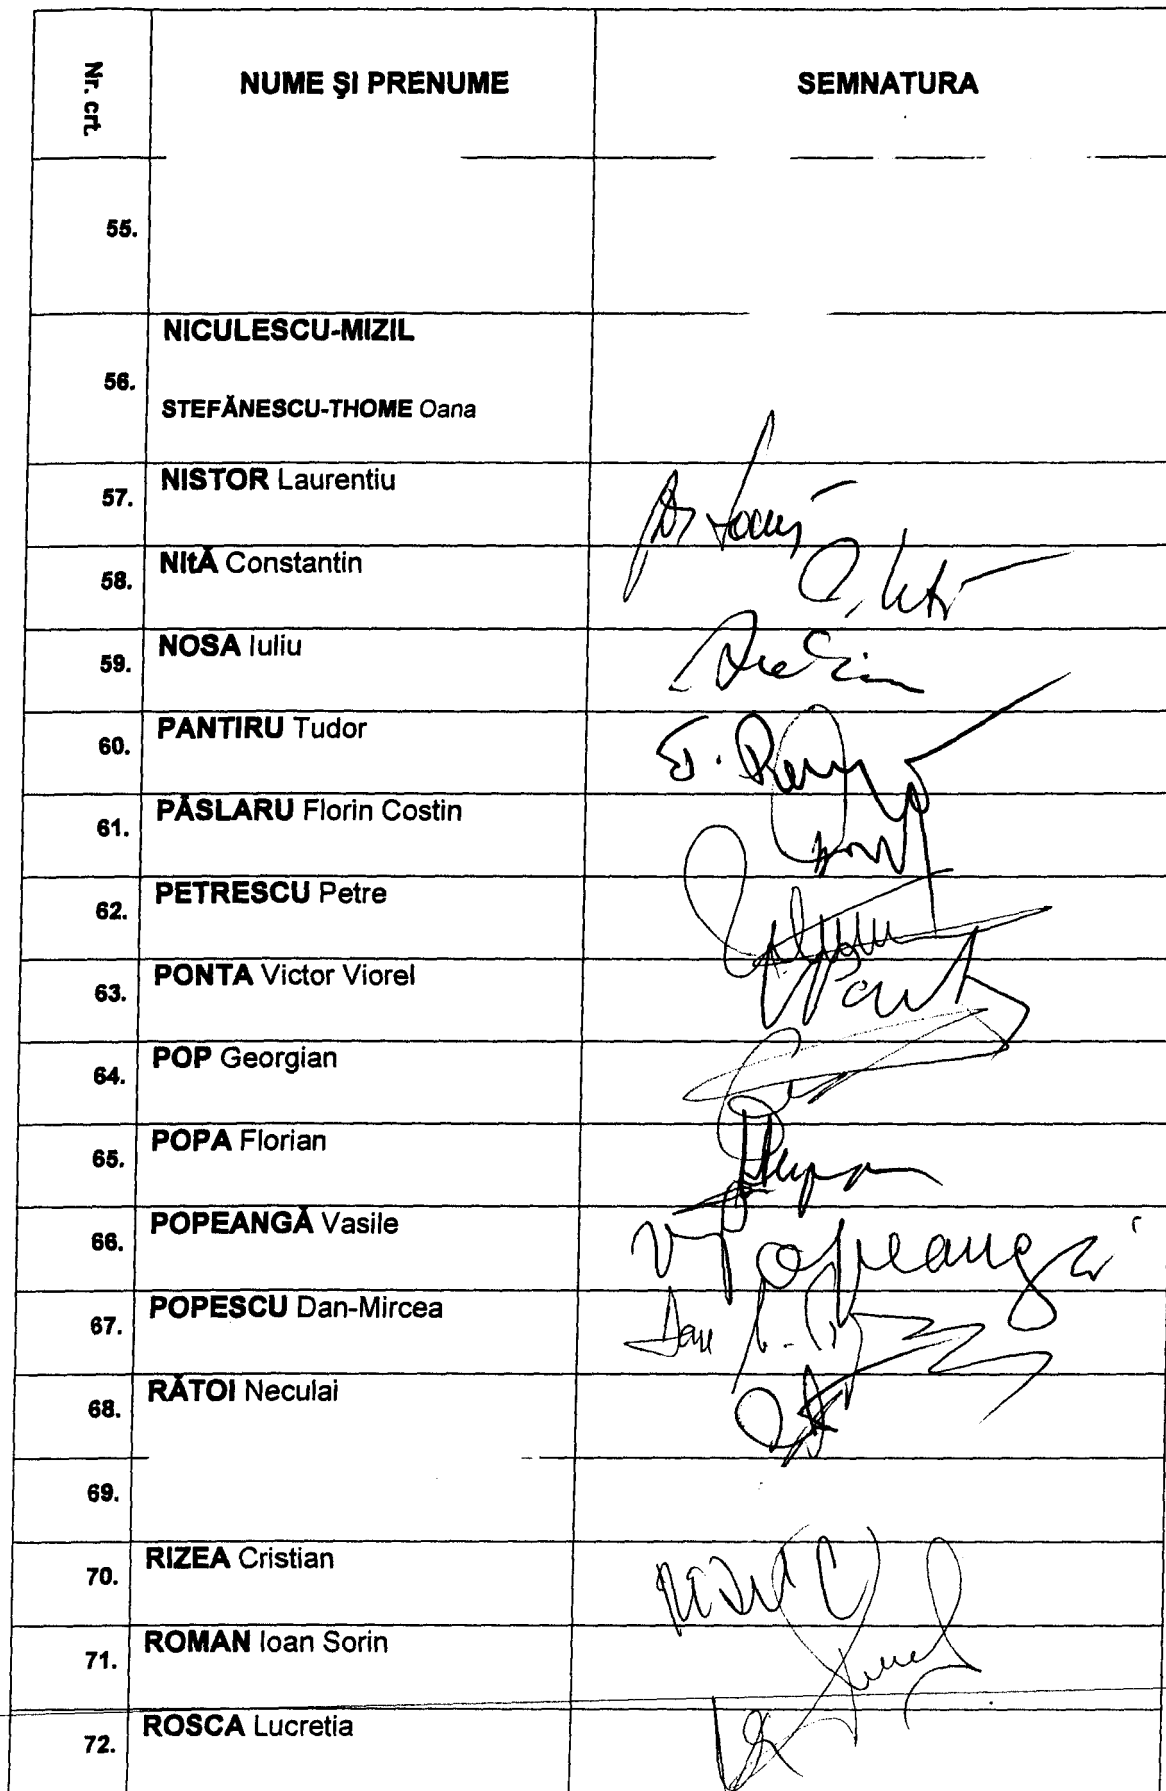 Nr. crt. NUME ŞI PRENUME SEMNATURA
55.
56. NICULESCU-MIZIL
STEFĂNESCU-THOME Oana
57. NISTOR Laurentiu
58. NItĂ Constantin
59. NOSA Iuliu
60. PANTIRU Tudor
61. PĂSLARU Florin Costin
62. PETRESCU Petre
63. PONTA Victor Viorel
64. POP Georgian
65. POPA Florian
66. POPEANGĂ Vasile V Popeangă
67. POPESCU Dan-Mircea Dan
68. RĂTOI Neculai
69.
70. RIZEA Cristian
71. ROMAN Ioan Sorin
72. ROSCA Lucretia